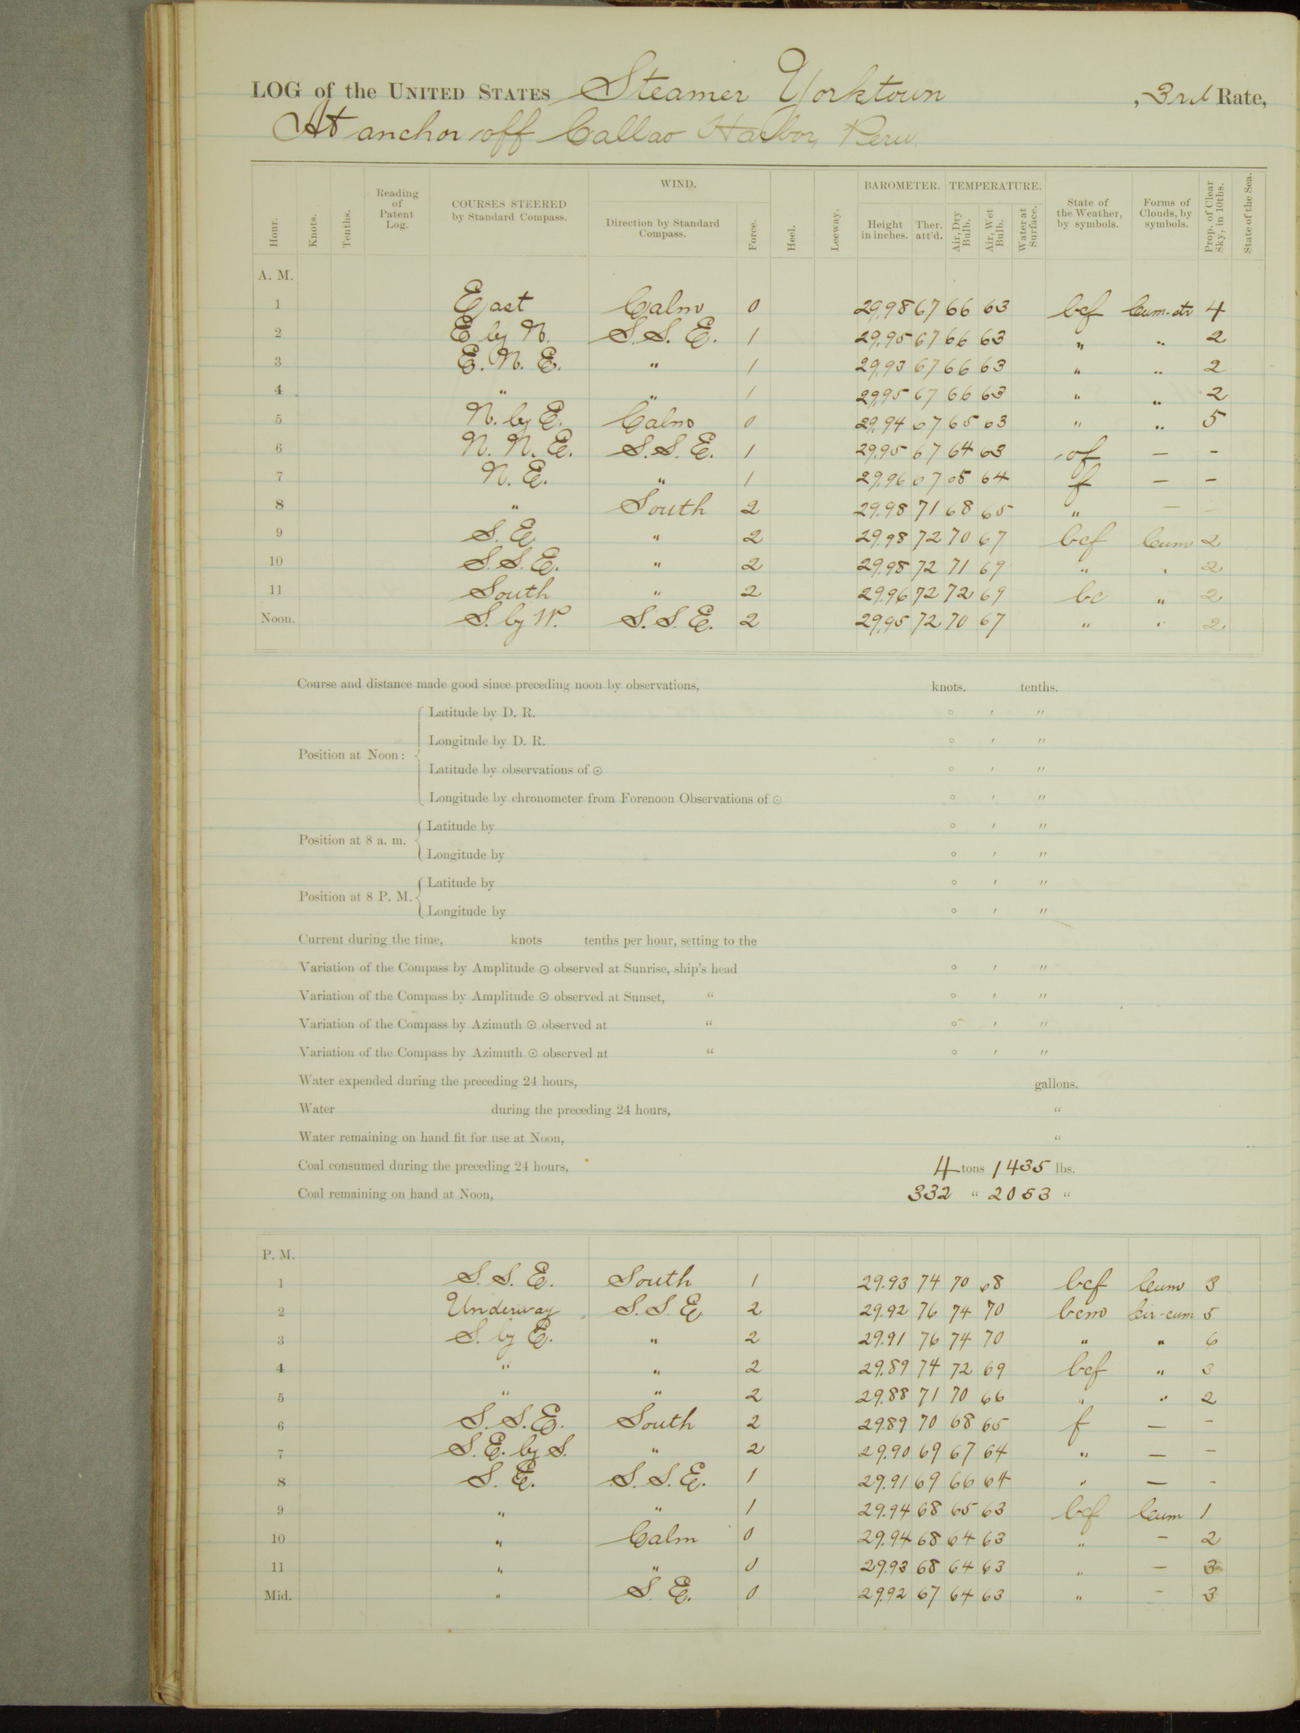 LOG of the UNITED STATES Steamer Yorktown , 3rd Rate,
At anchor off Callao Harbor, Peru.
Hour. Knots. Tenths. Reading of Patent Log. COURSES STEERED by Standard Compass. WIND. Direction by Standard Compass. Force. Heel. Leeway. BAROMETER. Height in inches. Ther. att'd. TEMPERATURE. Air, Dry Bulb. Air, Wet Bulb. Water at Surface. State of the Weather, by symbols. Forms of Clouds, by symbols. Prop. of Clear Sky, in 10ths. State of the Sea.
A. M.
1 East Calm 0 29.98 67 66 63 bcf Cum-str 4
2 E by N. S.S.E. 1 29.95 67 66 63 " " 2
3 E.N.E. " 1 29.93 67 66 63 " " 2
4 " " 1 29.95 67 66 63 " " 2
5 N. by E. Calm 0 29.94 67 65 63 " " 5
6 N.N.E. S.S.E. 1 29.95 67 64 63 of — -
7 N.E. " 1 29.96 67 65 64 f — -
8 " South 2 29.98 71 68 65 " — -
9 S.E. " 2 29.98 72 70 67 bcf Cum 2
10 S.S.E. " 2 29.98 72 71 69 " " 2
11 South " 2 29.96 72 72 69 bc " 2
Noon. S. by W. S.S.E. 2 29.95 72 70 67 " " 2
Course and distance made good since preceding noon by observations, knots. tenths.
Position at Noon:
Latitude by D. R. ° ' "
Longitude by D. R. ° ' "
Latitude by observations of ☉ ° ' "
Longitude by chronometer from Forenoon Observations of ☉ ° ' "
Position at 8 a. m.
Latitude by ° ' "
Longitude by ° ' "
Position at 8 P. M.
Latitude by ° ' "
Longitude by ° ' "
Current during the time, knots tenths per hour, setting to the
Variation of the Compass by Amplitude ☉ observed at Sunrise, ship's head ° ' "
Variation of the Compass by Amplitude ☉ observed at Sunset, " ° ' "
Variation of the Compass by Azimuth ☉ observed at " ° ' "
Variation of the Compass by Azimuth ☉ observed at " ° ' "
Water expended during the preceding 24 hours, gallons.
Water during the preceding 24 hours, "
Water remaining on hand fit for use at Noon, "
Coal consumed during the preceding 24 hours, 4 tons 1435 lbs.
Coal remaining on hand at Noon, 332 " 2053 "
P. M.
1 S.S.E. South 1 29.93 74 70 68 bcf Cum 3
2 Underway S.S.E 2 29.92 76 74 70 bcm Cir-cum 5
3 S. by E. " 2 29.91 76 74 70 " " 6
4 " " 2 29.89 74 72 69 bcf " 3
5 " " 2 29.88 71 70 66 " " 2
6 S.S.E. South 2 29.89 70 68 65 f — -
7 S.E. by S. " 2 29.90 69 67 64 " — -
8 S.E. S.S.E. 1 29.91 69 66 64 " — -
9 " " 1 29.94 68 65 63 bcf Cum 1
10 " Calm 0 29.94 68 64 63 " — 2
11 " " 0 29.93 68 64 63 " — 3
Mid. " S.E. 0 29.92 67 64 63 " — 3